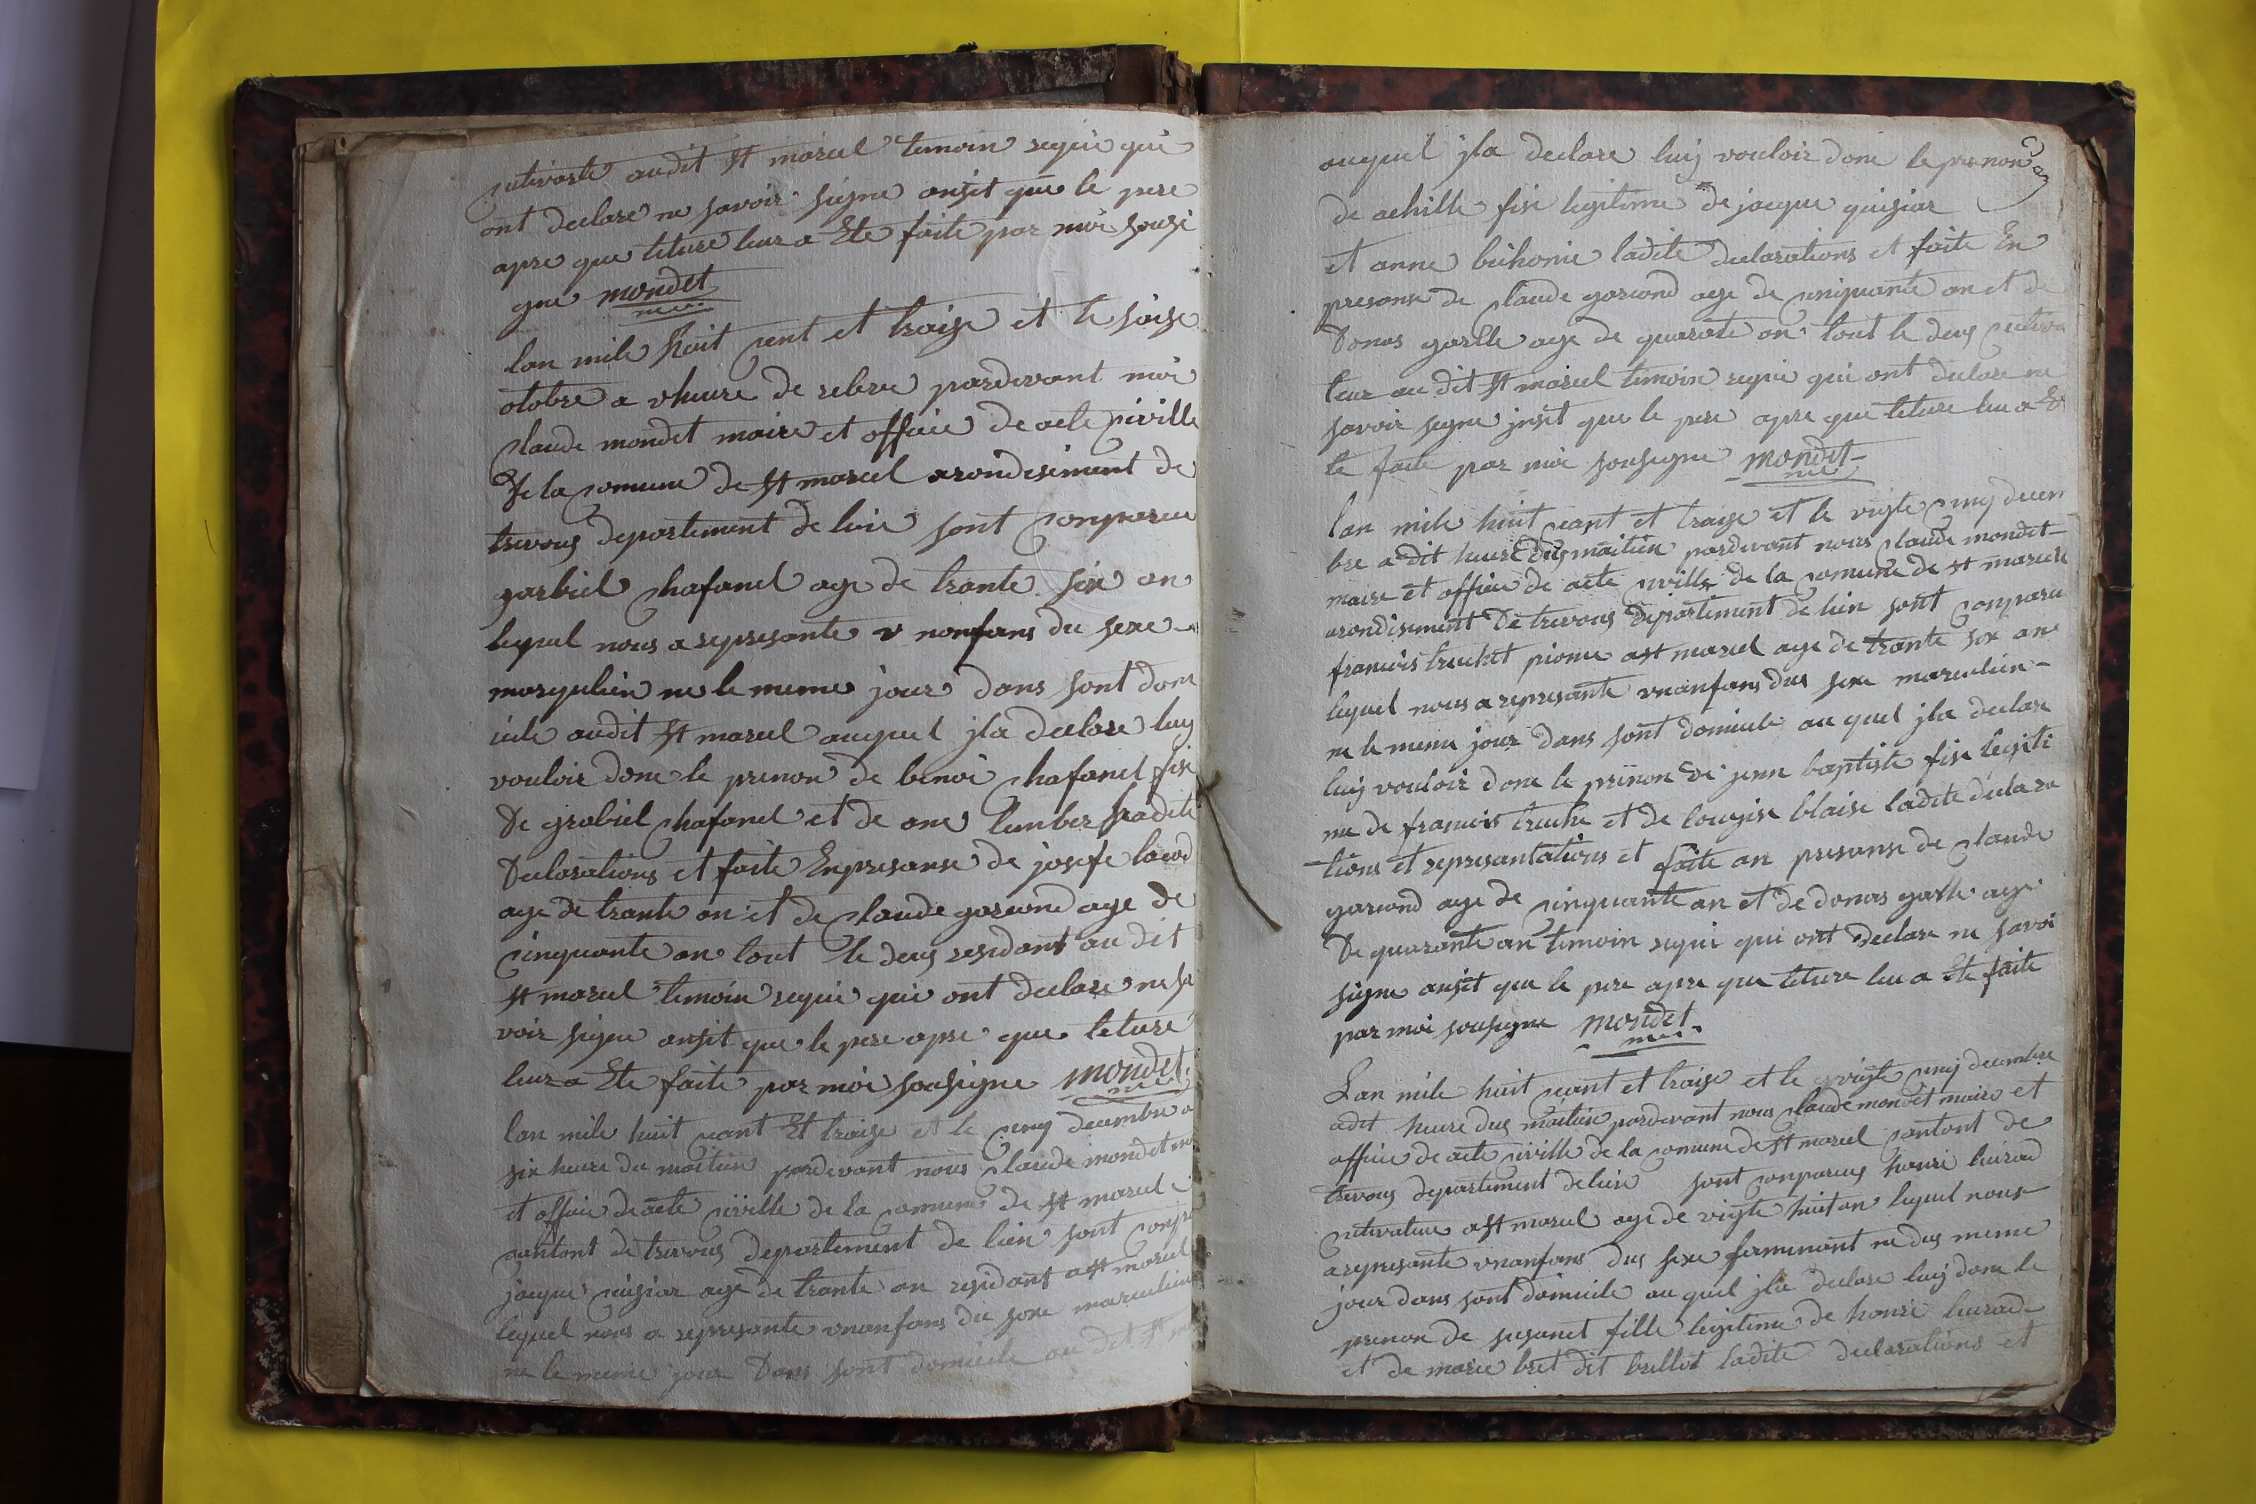 cultivaste audit st marcel temoin requi qui
ont declare ne savoir signe ansit que le pere
apre que leture leur a Ete faite par moi sousi
gne mondet
lan mile huit cent et traize et le saise
otobre a vheure de relevee pardevant moi
claude mondet maire et officie de acte civille
De la comune de st marcel arondisement de
trevous departement de lein sont conparu
garbiel chafanel age de trante six an
lequel nous a represante v nonfans du sexe
masqulien ne le meme jour dans sont dom
icile audit st marcel auquel jla declare luy
vouloir done le prenon de benoi chafanel fise
De grabiel chafanel et de ane lenber ladite
Declarations et faite Enpresanse de josefe
age de trante an et de claude garcond age de
cinquante an tout le deus residant au dit
st marcel temoin requi qui ont declare ne sa
voir signe ansit que le pere apre que leture
leur a Ete faite par moi sousigne mondet
lan mile huit cant Et traize et le cinq decembre a
six heure du maitien pardevant nous claude mondet
et officie de acte civille de la comune de st marcel
cantont de trevous departement de lien sont conp
jacque age de trante an residant a st marcel
lequel nous a represante vnanfans du sexe marculien
ne le meme jour Dans sont domicile au dit st
auquel jla declare luij vouloir done le prenon
de achille fise legitime de jacque
et anne ladite declarations et faite En
presanse de claude garcond age de cinquante an et de
Donas garlle age de quarate an tout le deus cultiva
teur au dit st marcel temoin requi qui ont declare ne
savoir segne jnsit que le pere apre que leture leu a E
te faite par moi sousigne mondet
lan mile huit cant et traize et le vigte cinq decem
bre a dit heure dus maitien pardevant nous claude mondet
maire et officie de acte civille de la comune de st marcele
arondisement De trevous departement de lein sont conparu
francois truchet a st marcel age de trante six ane
lequel nous a represante vnanfans dus sexe marculien
ne le meme jour dans sont domicile au quel jla declare
luij vouloir done le prenon de jean baptiste fise legiti
me de francois truche et de louyise blaise ladite declara
tions et represantations et faite an presanse de claude
garcond age de cinquante an et de donas garlle age
De quarante an temoin requi qui ont declare ne savoi
signe ansit que le pere apre que leture leu a Ete faite
par moi sousigne mondet
Lan mile huit cant et traize et le vigte cinq decembre
adit heure dus maitien pardevant nous claude mondet maire et
officie de acte civille de la comune de st marcel cantont de
trevous departement de lein sont conparus honre
cutivateur a st marcel age de vigte huit an lequel nous
a represante vnanfans dus sexe femminant ne dus meme
jour dans sont domicile au quel jla declare luij done le
prenon de susanet fille legitime de honre
et de marie bret dit ladite declarations et